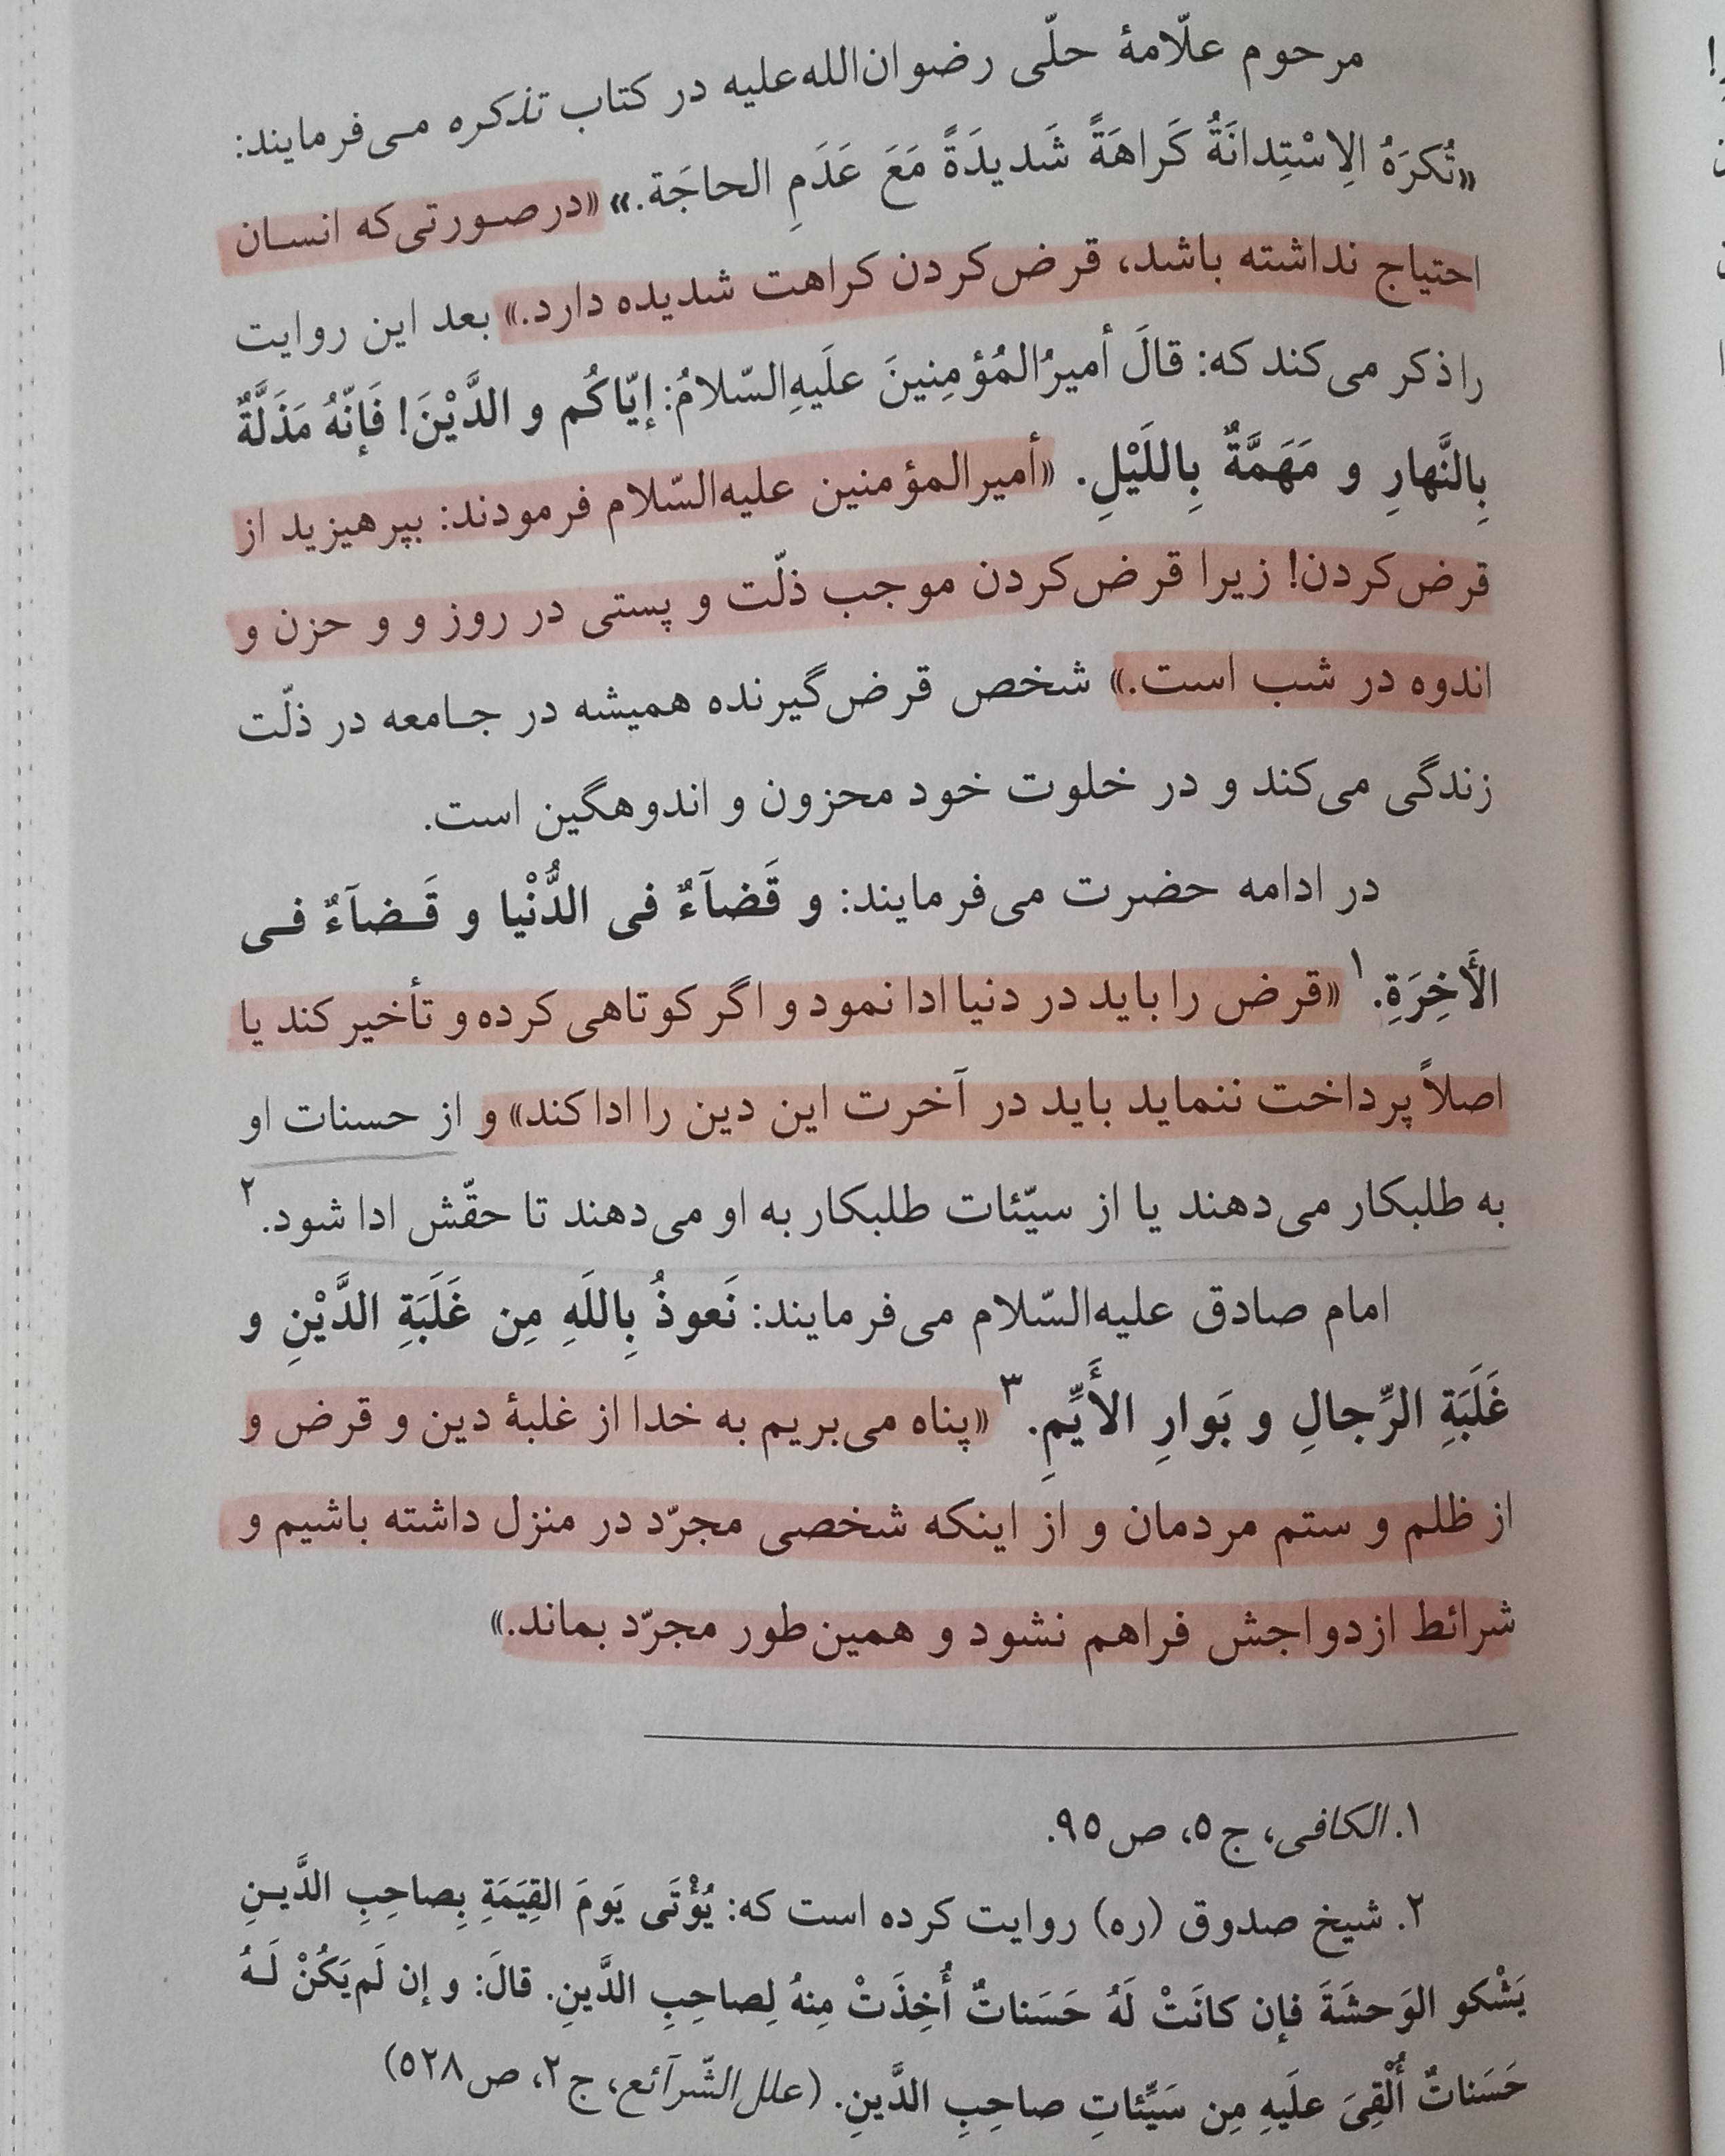 مرحوم علّامهٔ حلّی رضوان‌الله‌علیه در کتاب تذکره می‌فرمایند:
«تُکرَهُ الِاسْتِدانَةُ کَراهَةً شَدیدَةً مَعَ عَدَمِ الحاجَة.» «درصورتی‌که انسان
احتیاج نداشته باشد، قرض‌کردن کراهت شدیده دارد.» بعد این روایت
را ذکر می‌کند که: قالَ أمیرُالمُؤمِنینَ علَیهِ‌السّلامُ: إیّاکُم و الدَّیْنَ! فَإنّهُ مَذَلَّةٌ
بِالنَّهارِ و مَهَمَّةٌ بِاللَیْلِ. «أمیرالمؤمنین علیه‌السّلام فرمودند: بپرهیزید از
قرض‌کردن! زیرا قرض‌کردن موجب ذلّت و پستی در روز و و حزن و
اندوه در شب است.» شخص قرض‌گیرنده همیشه در جامعه در ذلّت
زندگی می‌کند و در خلوت خود محزون و اندوهگین است.
در ادامه حضرت می‌فرمایند: و قَضآءٌ فی الدُّنْیا و قَضآءٌ فی
الأَخِرَةِ.۱ «قرض را باید در دنیا ادا نمود و اگر کوتاهی کرده و تأخیر کند یا
اصلاً پرداخت ننماید باید در آخرت این دین را ادا کند» و از حسنات او
به طلبکار می‌دهند یا از سیّئات طلبکار به او می‌دهند تا حقّش ادا شود.۲
امام صادق علیه‌السّلام می‌فرمایند: نَعوذُ بِاللَهِ مِن غَلَبَةِ الدَّیْنِ و
غَلَبَةِ الرِّجالِ و بَوارِ الأَیِّمِ.۳ «پناه می‌بریم به خدا از غلبهٔ دین و قرض و
از ظلم و ستم مردمان و از اینکه شخصی مجرّد در منزل داشته باشیم و
شرائط ازدواجش فراهم نشود و همین‌طور مجرّد بماند.»
۱. الکافی، ج۵، ص۹۵.
۲. شیخ صدوق (ره) روایت کرده است که: یُؤْتَی یَومَ القِیَمَةِ بِصاحِبِ الدَّینِ
یَشْکو الوَحشَةَ فإن کانَتْ لَهُ حَسَناتٌ أُخِذَتْ مِنهُ لِصاحِبِ الدَّینِ. قالَ: و إن لَم‌یَکُنْ لَهُ
حَسَناتٌ أُلْقِیَ علَیهِ مِن سَیِّئاتِ صاحِبِ الدَّینِ. (علل‌الشّرآئع، ج۲، ص۵۲۸)